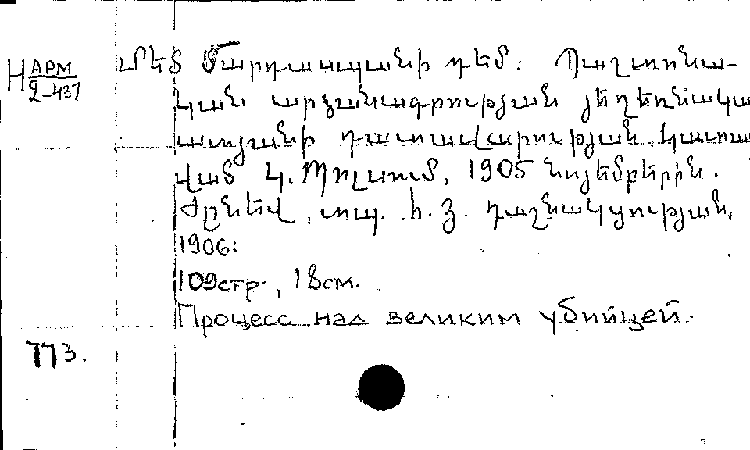 Н АРМ
2-437
Մեծ Մարդասպանի դեմ. Պաշտօնա-
կան արձանագրութեան յեղեռնակա
ատեանի դատավարութեան կատա
ված Կ. Պոլսում, 1905 նոյեմբերին.
Ժընեվ, տպ. Հ. Յ. դաշնակցութեան,
1906:
109стр., 18см.
Процесс над великим убийцей.
773.